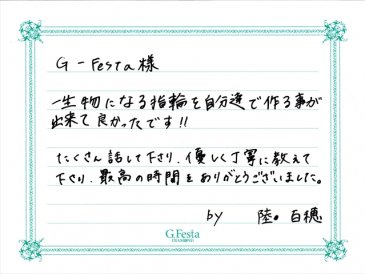 G-Festa様
一生物になる指輪を自分達で作る事が
出来て良かったです!!
たくさん話して下さり、優しく丁寧に教えて
下さり、最高の時間をありがとうございました。
by 陸・百穂
G.Festa